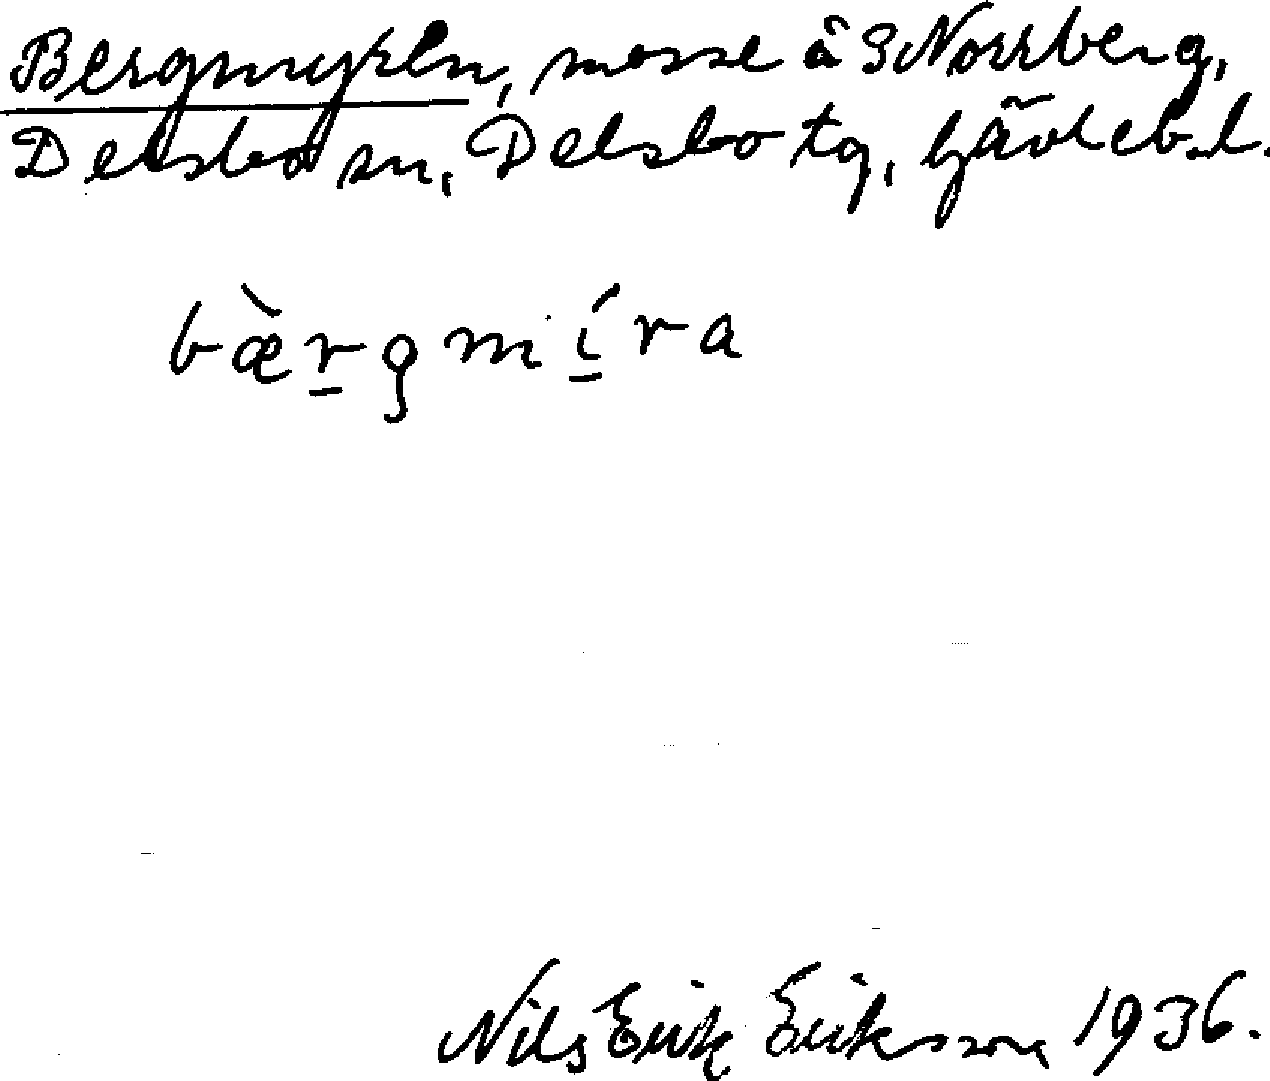 Bergmyren, mosse å S Norrberg,
Delsbo sn, Delsbo tg, Gävleb. l.
bæ̀r̲gmí̲ra
Nils Erik Eriksson 1936.